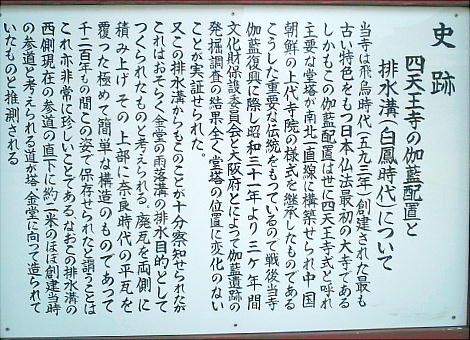 史跡
四天王寺の伽藍配置と
排水溝(白鳳時代)について
当寺は飛鳥時代(五九三年)創建された最も
古い特色をもつ日本仏法最初の大寺である
しかもこの伽藍配置は世に四天王寺式と呼れ
主要な堂塔が南北一直線に構築せられ中国
朝鮮の上代寺院の様式を継承したものである
こうした重要な伝統をもっているので戦後当寺
伽藍復興に際し昭和三十一年より三ヶ年間
文化財保護委員会と大阪府とによって伽藍遺跡の
発掘調査の結果全く堂塔の位置に変化のない
ことが実証せられた。
又この排水溝からもこのことが十分察知せられたが
これはおそらく金堂の雨落溝の排水目的として
つくられたものと考えられる。廃瓦を両側に
積み上げ その上部に奈良時代の平瓦を
覆った極めて簡単な構造のものであって
千二百年もの間この姿で保存せられたと謂うことは
これ亦非常に珍しいことである、なおこの排水溝の
西側現在の参道の直下に約二米のほぼ創建当時
の参道と考えられる道が塔、金堂に向って造られて
いたものと推測される